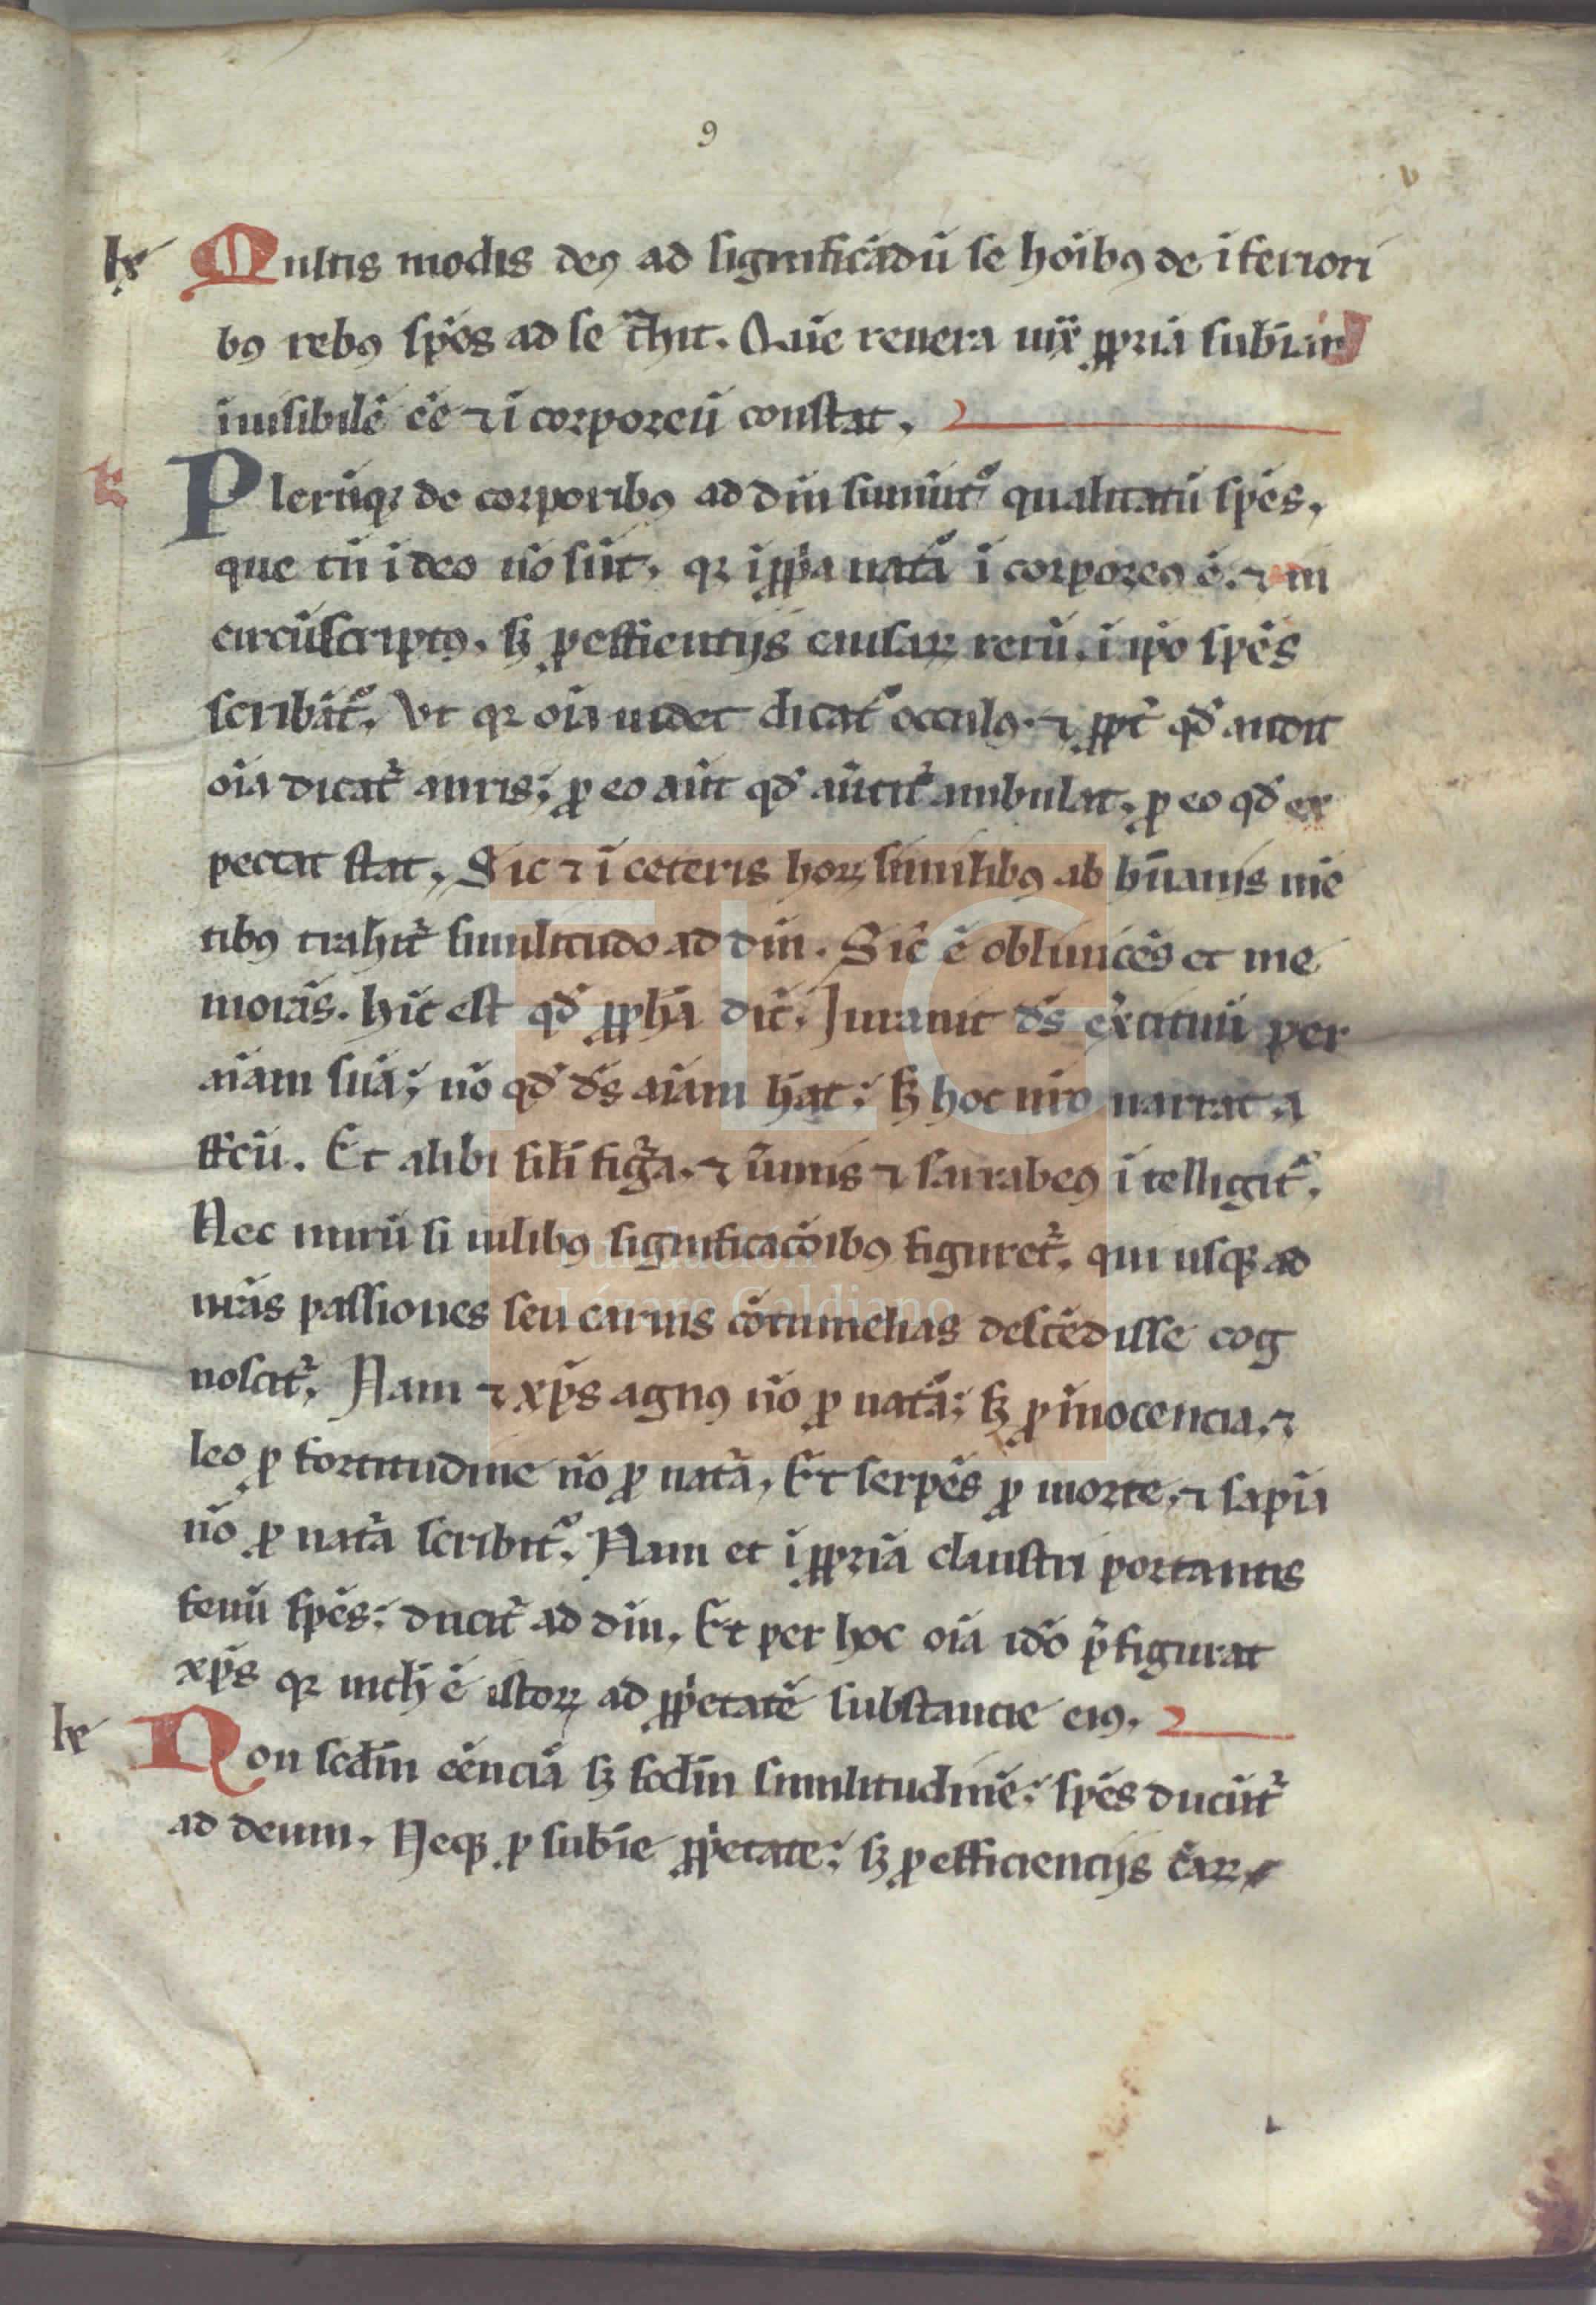 9
v
Multis modis deꝰ ad significādū se hoībꝰ de īferiori
bꝰ rebꝰ spēs ad se t̃hit. Que reuera iux̄ ꝓpriā subīam
inuisibilē ēe ⁊ īcorporeū constat.
Plerūqꝫ de corporibꝰ ad dm̄ sumūt᷑ qualitatū spēs,
que tn̄ ī deo nō sūt. qꝛ ī ꝓp̃a natã īcorporeꝰ ē. ⁊ in
circūscriptꝰ. sꝫ ꝓ efficientijs causaꝝ rerū. ī ip̄o spēs
scribāt᷑. Vt qꝛ oīa uidet dicat᷑ occulꝰ. ⁊ ꝓpt̃ qd̃ audit
oīa dicat᷑ auris; ꝓ eo aūt qd̃ au̅tit᷑ ambulat, ꝓ eo qd̃ ex
pectat stat, Sic ⁊ ī ceteris hoꝝ similibꝰ ab hūanis mē
tibꝰ trahit᷑ similitudo ad dm̄. Sic̄ ē obliuicēs et me
morās. hīc est qd̃ ꝓph̄a dic̄. Iurauit ds̄ ex̃cituū per
aīam suā; nō qd̃ ds̄ aīam h̄at; sꝫ hoc nr̄o narrat a
ffc̄ū. Et alibi filī fig̃a. ⁊ ũmis ⁊ scarabeꝰ ītelligit᷑.
Nec mirū si uilibꝰ significacōibꝰ figuret᷑, qui usqꝫ ad
nr̄as passiones seu carnis cōtumelias descēdisse cog
noscit᷑. Nam ⁊ xp̄s agnꝰ nō ꝓ natã; sꝫ ꝓ inocencia, ⁊
leo ꝓ fortitudine nō ꝓ natã, Et serpēs ꝓ morte, ⁊ sapīa
nō ꝓ natã scribit᷑. Nam et ī ꝓpriā claustri portantis
fenū spēs; ducit᷑ ad dm̄. Et per hoc oīa idō p̄figurat
xp̄s qꝛ nichꝉ ē istoꝝ ad ꝓp̃etatē substancie eiꝰ.
Non scd̄m eēnciā sꝫ scd̄m similitudinē; spēs ducūt᷑
ad deum. Neqꝫ ꝓ subīe ꝓp̃etate; sꝫ ꝓ efficientijs
FLG
Fundación
Lázaro Galdiano